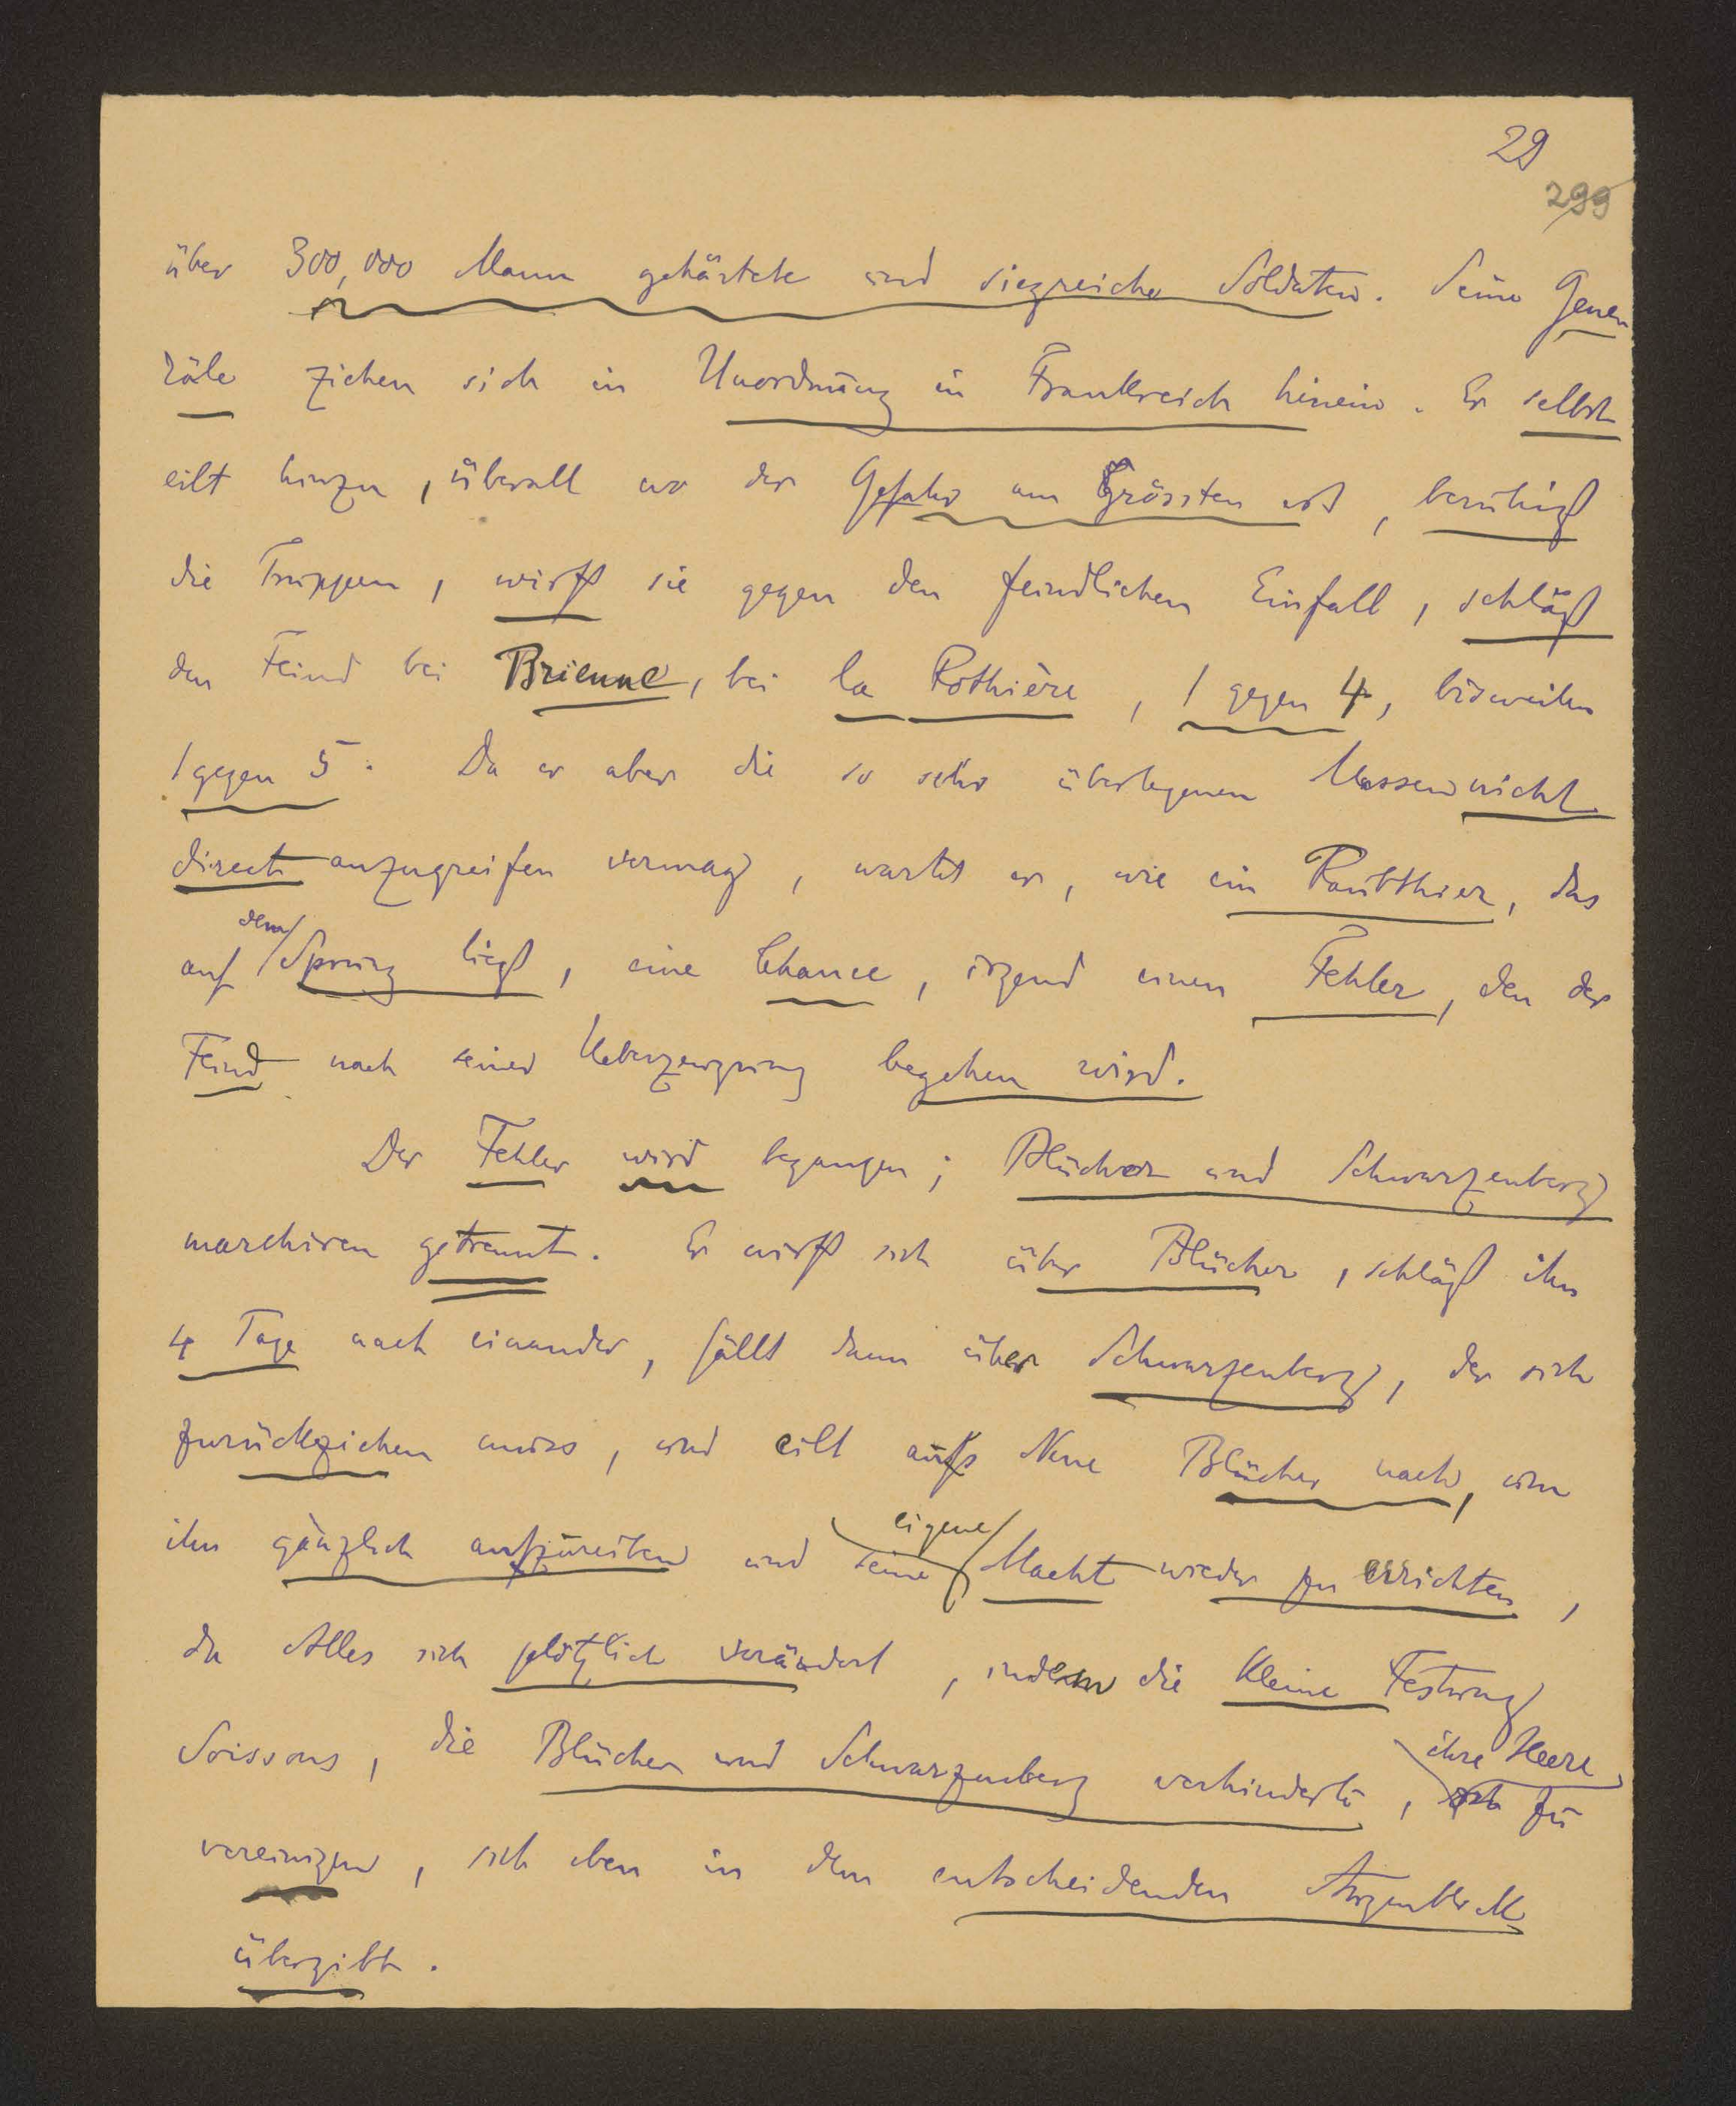 29
299
über 300,000 Mann gehärtete und siegreiche Soldaten. Seine Gene
räle ziehen sich in Unordnung in Frankreich hinein. Er selbst
eilt hinzu, überall wo der Gefahr am Grössten ist, beruhigt
die Truppen, wirft sie gegen den feindlichen Einfall, schlägt
den Feind bei Brienne, bei la Rothière, 1 gegen 4, bisweilen
1 gegen 5. Da er aber die so sehr überlegenen Massen nicht
direct anzugreifen vermag, wartet er, wie ein Raubthier, das
auf dem Sprung liegt, eine Chance, irgend einen Fehler, den der
Feind nach seiner Ueberzeugung begehen wird.
Der Fehler wird begangen; Blücher und Schwarzenberg
marchiren getrennt. Er wirft sich über Blücher, schlägt ihn
4 Tage nach einander, fällt dann über Schwarzenberg, der sich
zurückziehen muss, und eilt aufs Neue Blücher nach, um
ihn gänzlich aufzureiben und seine eigene Macht wieder zu errichten,
da Alles sich plötzlich verändert, indem die kleine Festung
Soissons, die Blücher und Schwarzenberg verhinderte, sich ihre Heere zu
vereinigen, sich eben in dem entscheidenden Augenblick
übergibt.